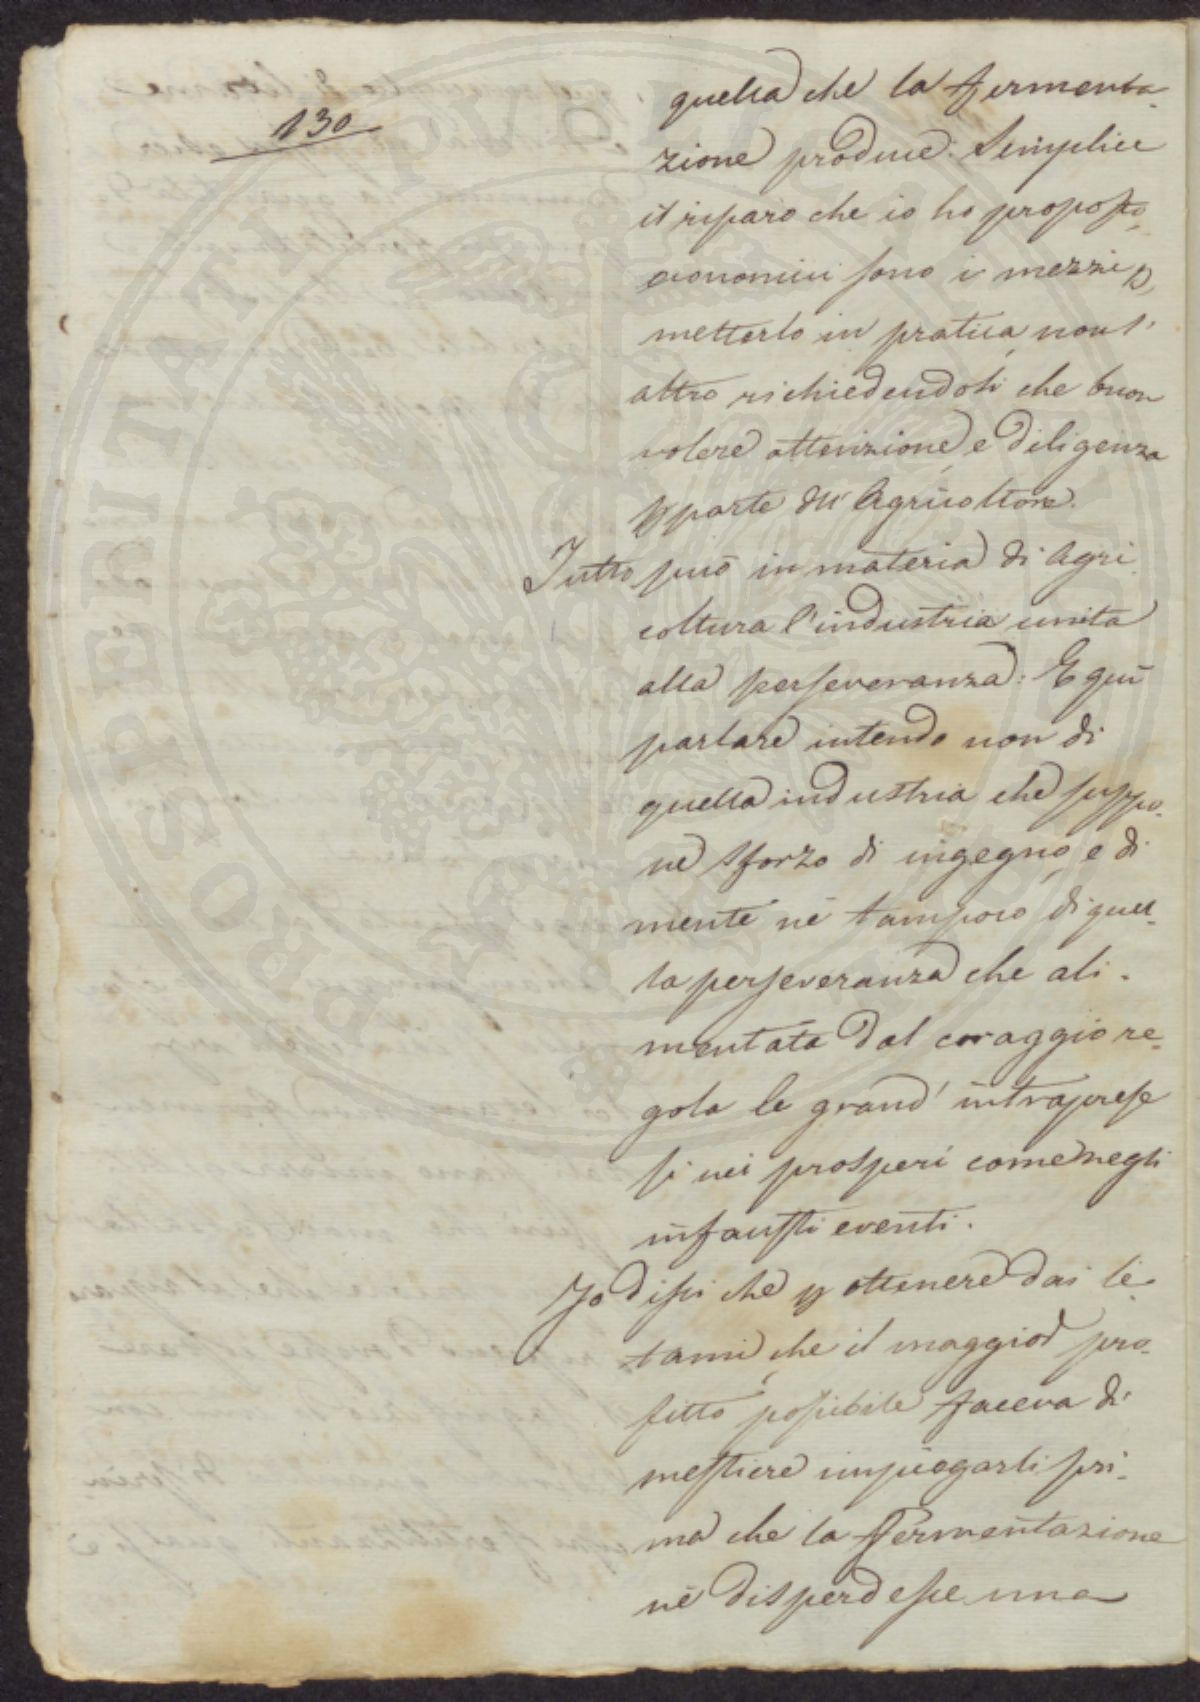 130
quella che la fermenta-
zione produce. Semplice
il riparo che io ho proposto,
economici sono i mezzi p
metterlo in pratica, non
altro richiedendosi che buon
volere attenzione, e diligenza
p parte dell' Agricoltore.
Tutto può in materia di Agri-
coltura l'industria unita
alla perseveranza: E quì
parlare intendo non di
quella industria che suppo-
ne sforzo di ingegno, e di
mente nè tampoco di quel-
la perseveranza che ali-
mentata dal coraggio re-
gola le grand' intraprese
sì nei prosperi come negli
infausti eventi.
Io dissi che p ottenere dai le-
tami, che il maggior pro-
fitto possibile faceva di
mestiere impiegarli pri-
ma che la Fermentazione
ne disperdesse una
PROSPERITATI PUBLICAE